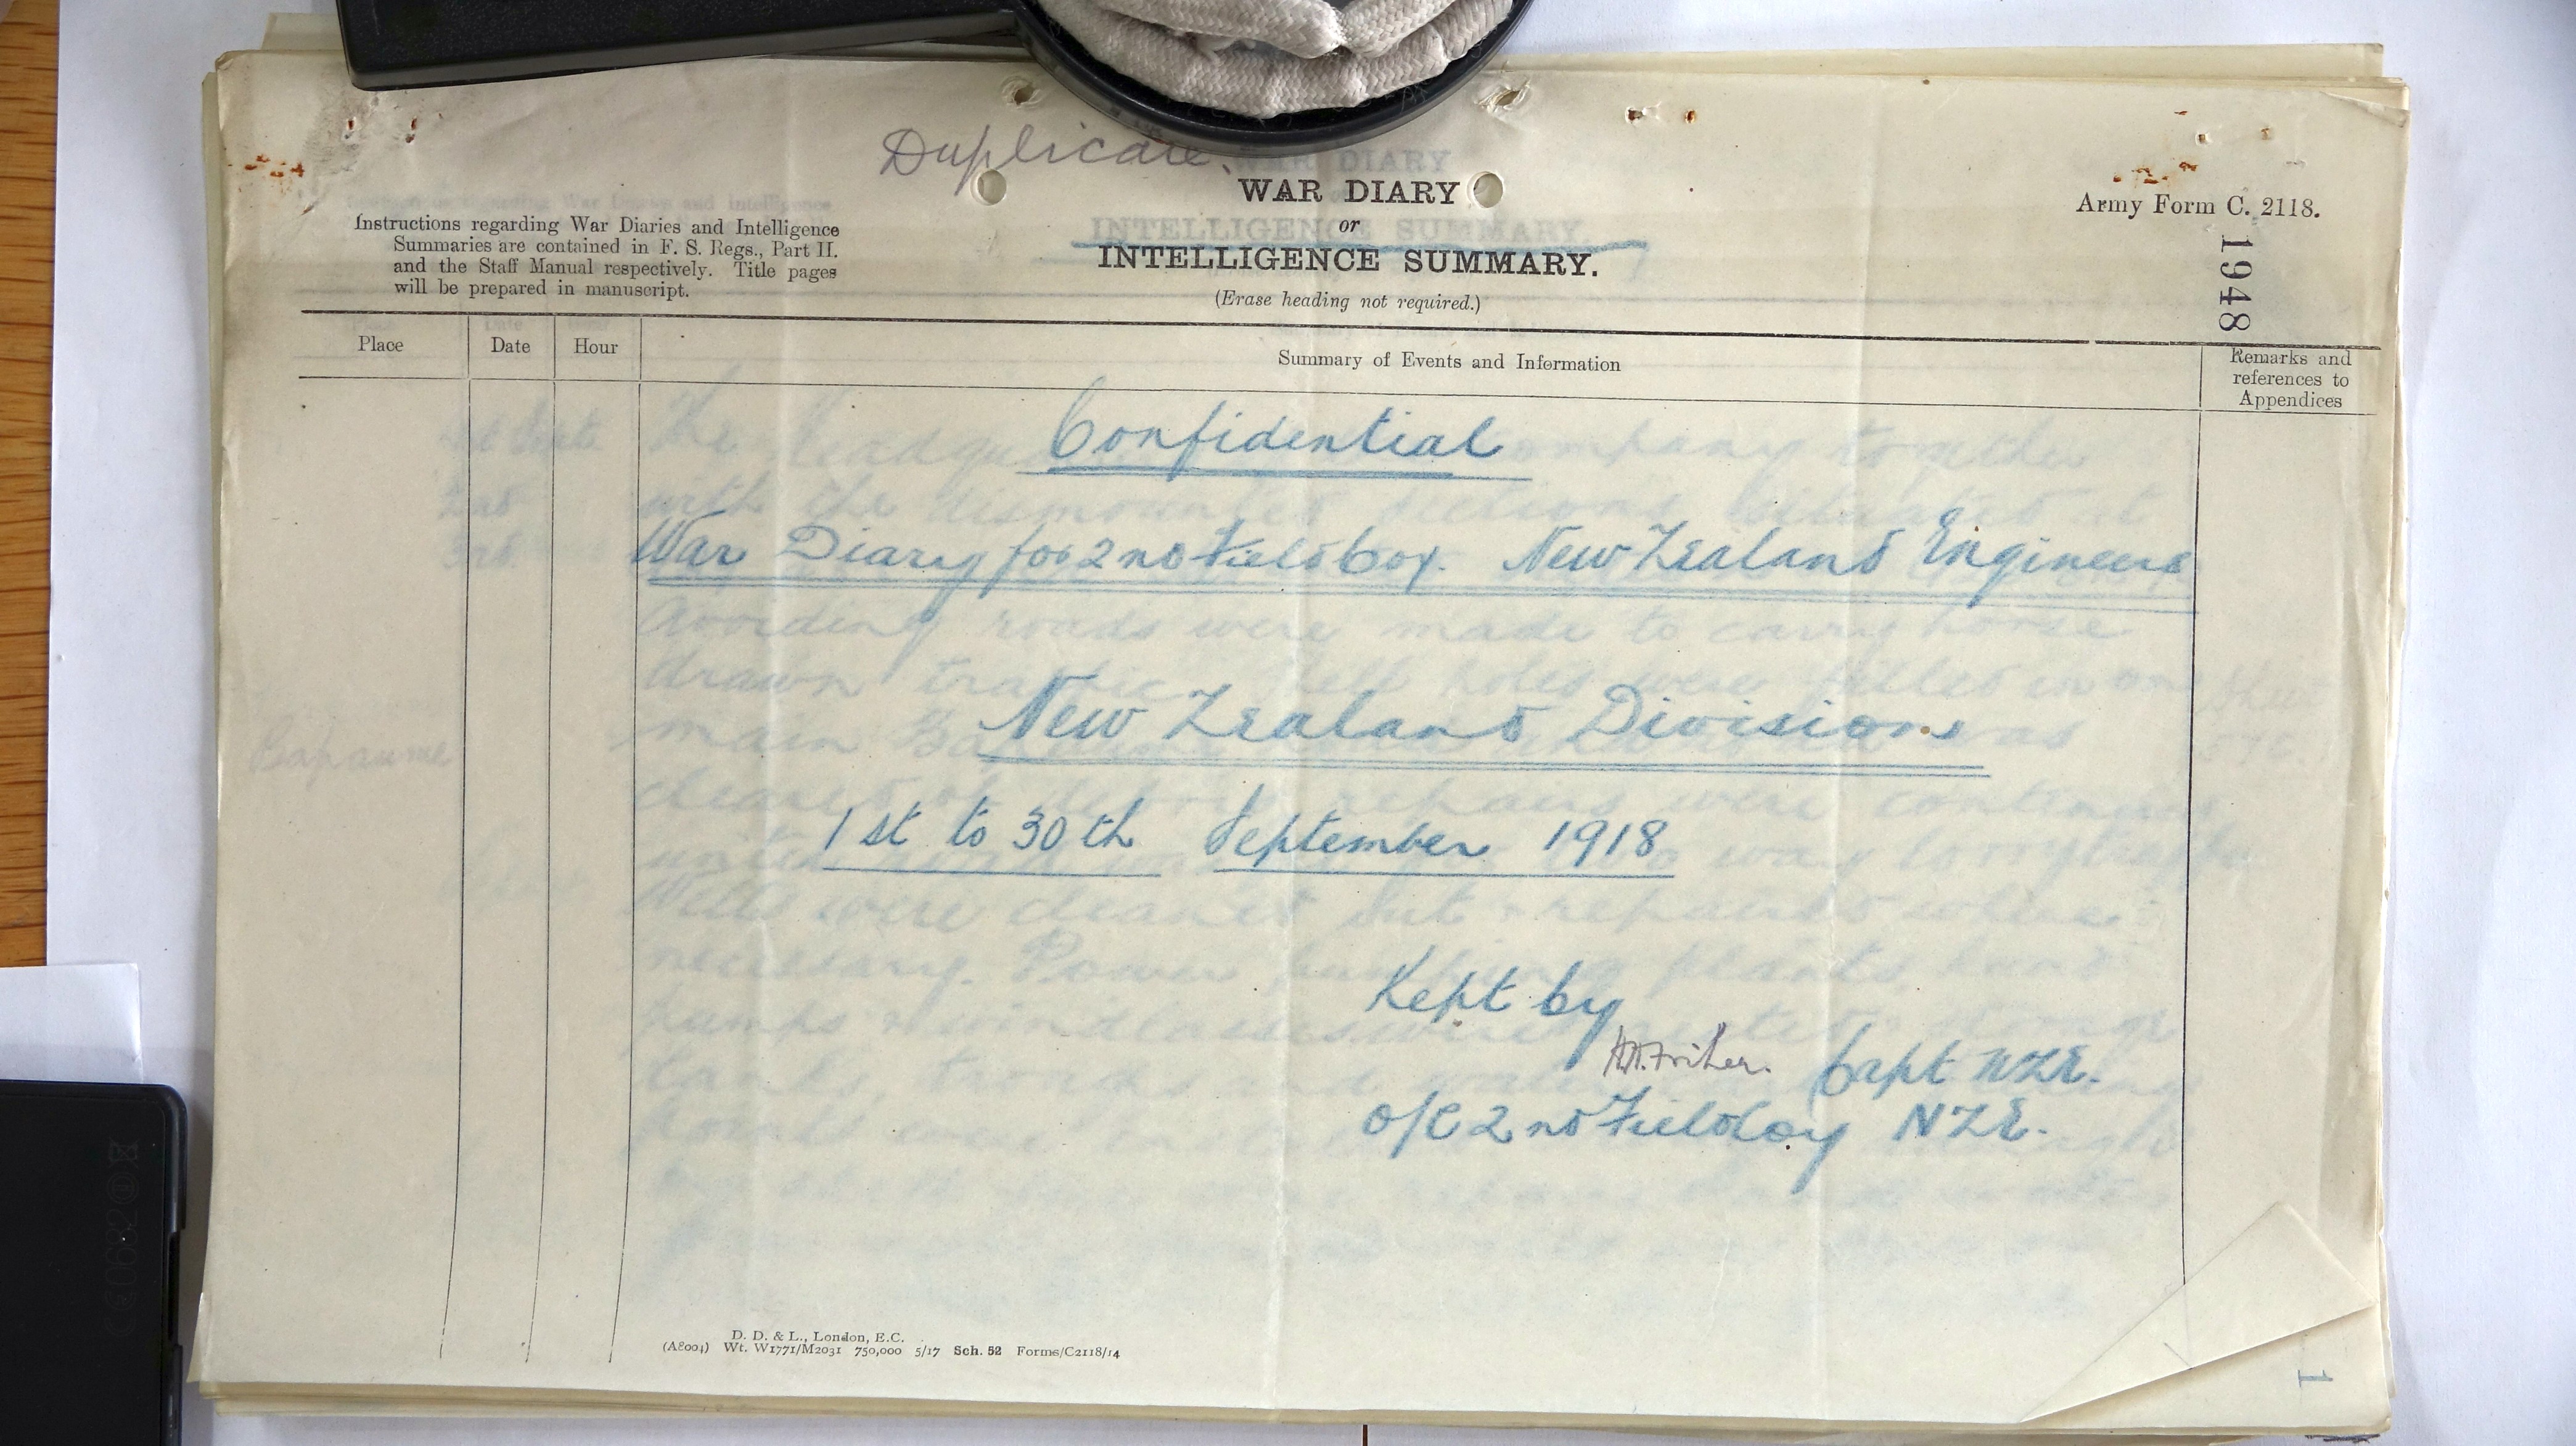 Duplicate.
WAR DIARY
or
INTELLIGENCE SUMMARY.
(Erase heading not required.)
Army Form C. 2118.
1948
Instructions regarding War Diaries and Intelligence
Summaries are contained in F. S. Regs., Part II.
and the Staff Manual respectively. Title pages
will be prepared in manuscript.
Place Date Hour Summary of Events and Information Remarks and
references to
Appendices
Confidential
War Diary for 2nd Field Coy. New Zealand Engineers
New Zealand Division
1st to 30th September 1918
Kept by
Capt NZE.
O/C 2nd Field Coy NZE.
D. D. & L., London, E.C.
(A8004) Wt. W1771/M2031 750,000 5/17 Sch. 52 Forms/C2118/14
1